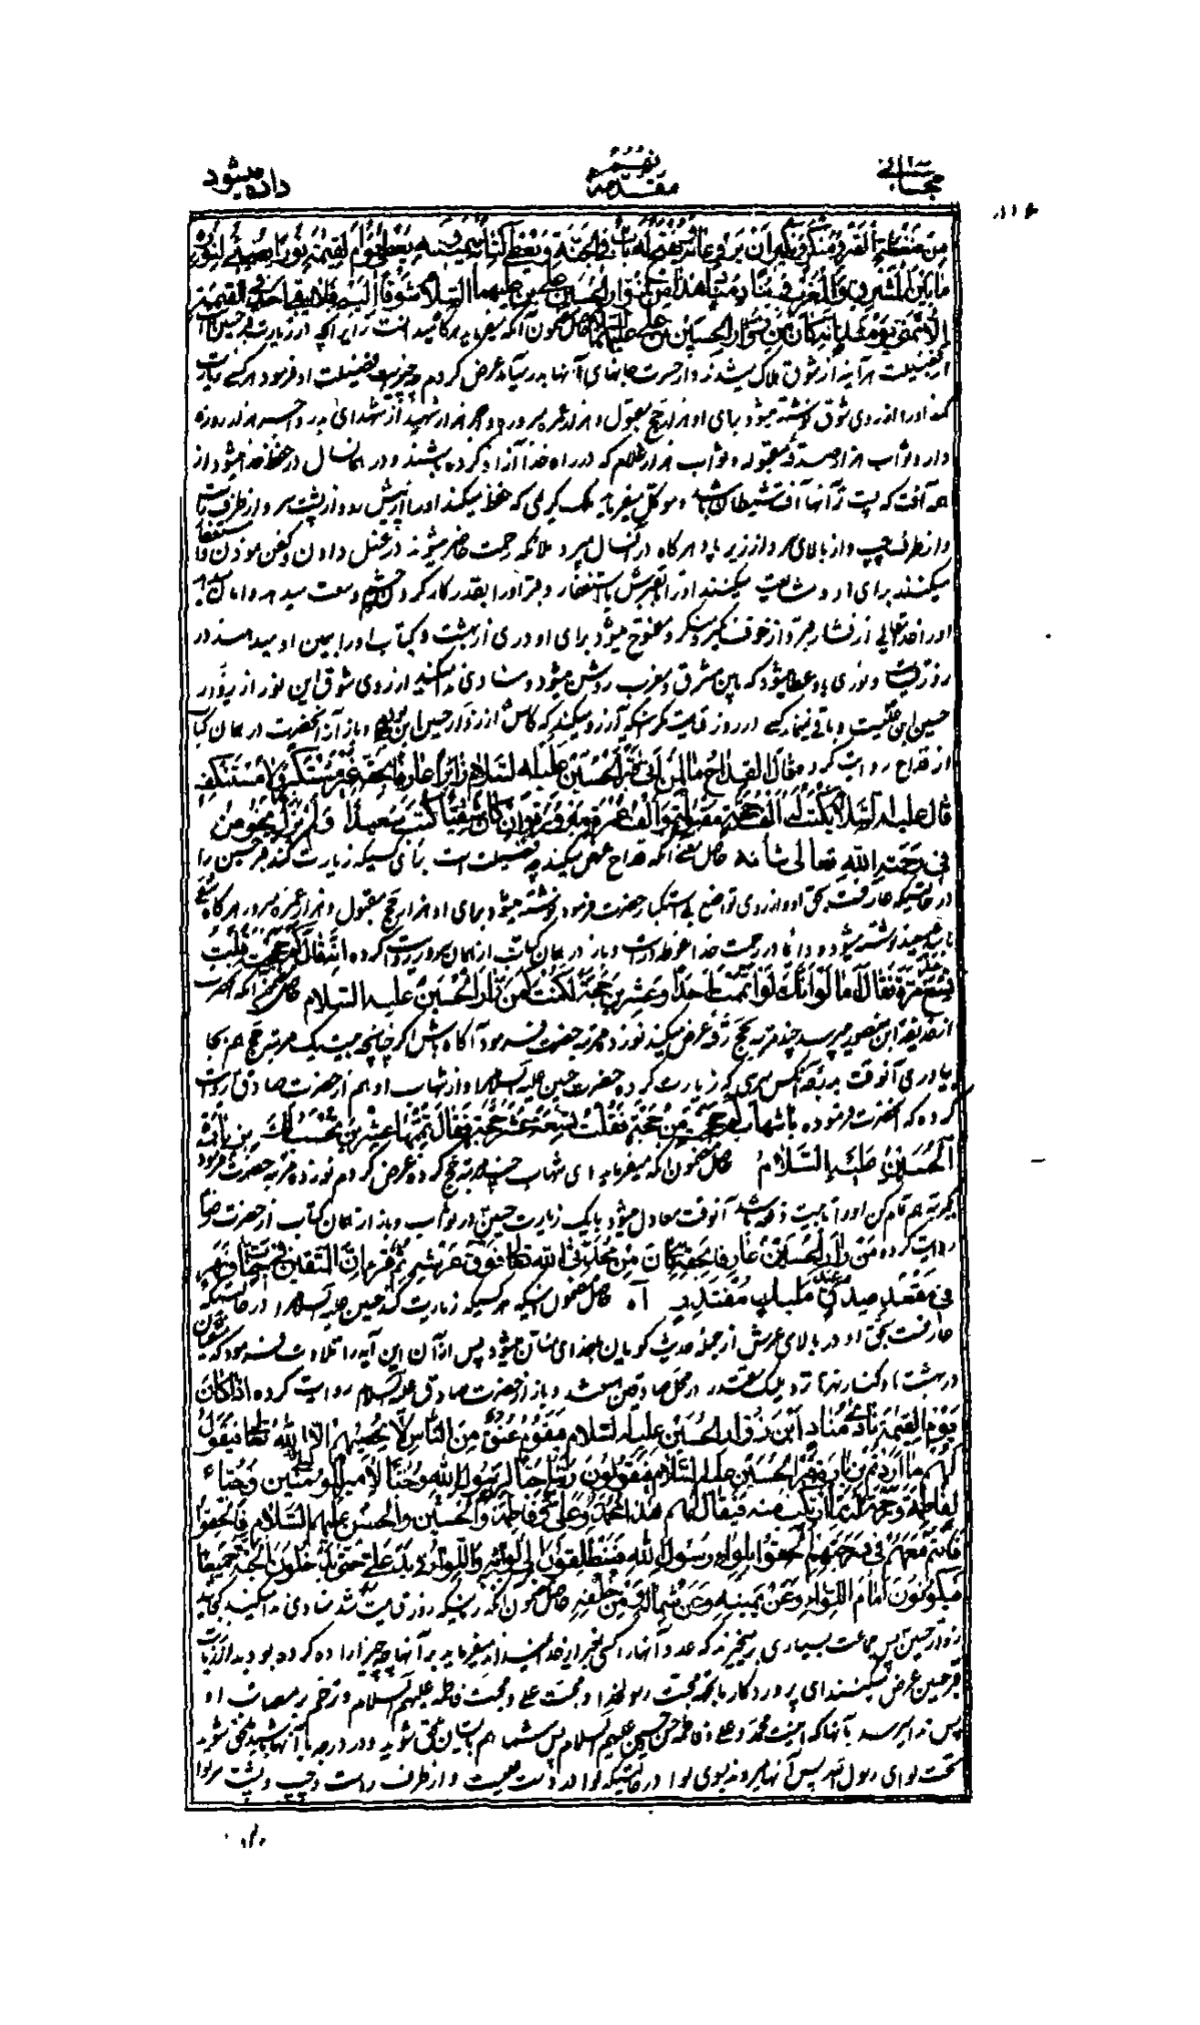 مقدمه
داده میشود
من ضغطة القبر و منکر و نکیر ان یروعانه و یفتح له باب الی الجنة و یعطی کتابه بیمینه و یعطی یوم القیمة نورا یضیء لنوره
ما بین المشرق و المغرب و ینادی مناد هذا من زوار الحسین بن علی علیهما السلام شوقا الیه فلا یبقی احد فی القیمة
الا تمنی یومئذ انه کان من زوار الحسین بن علی علیهما السلام
از فضیلت هر آینه از شوق هلاک میشدند و از حسرت جانهای آنها بدر میآمد عرض کردم چه چیز است فضیلت او فرمود هر کسی زیارت
کند او را از روی شوق نوشته میشود برای او هزار حج مقبول و هزار عمره مبروره و اجر هزار شهید از شهدای بدر و اجر هزار روزه
دار و ثواب هزار صدقه مقبوله و ثواب هزار غلام که در راه خدا آزاد کرده باشند و در همان سال در حفظ خدا میشود از
همه آفت که پست تر آنها آفت شیطان باشد و موکل میفرماید ملک کریمی که حفظ میکند او را از پیش رو و از پشت سر و از طرف راست
و از طرف چپ و از بالای سر و از زیر پا و هر گاه در آنسال میرد ملائکه رحمت حاضر میشوند در غسل دادن و کفن نمودن و استغفار
میکنند برای او و مشایعت میکنند او را تا قبرش باستغفار و قبر او را بقدر کار کردن چشم وسعت میدهد و امان میدهد
او را خدایتعالی از فشار قبر و از خوف نکیر و منکر و مفتوح میشود برای او دری از بهشت و کتاب او را بیمین او میدهند در
روز قیامت و نوری باو عطا میشود که مابین مشرق و مغرب روشن میشود و منادی ندا میکند از روی شوق این نور از زوار
حسین ابن علیست و باقی نمیماند کسی در روز قیامت مگر اینکه آرزو میکند که کاش از زوار حسین ابن علی بودم و باز از آنحضرت در همان کتاب
از قداح روایت کرده فقال القداح ما لمن اتی قبر الحسین علیه السلام زائرا عارفا بحقه غیر مستکبر و لا مستنکف
قال علیه السلام یکتب له الف حجة مقبولة و الف عمرة مبرورة و ان کان شقیا کتب سعیدا و لم یزل یخوض
فی رحمة الله تعالی شانه حاصل معنی آنکه قداح عرض میکند چه فضیلت است برای کسیکه زیارت کند قبر حسین را
در حالتیکه عارفست بحق او و از روی تواضع بی استکبار حضرت فرمود نوشته میشود برای او هزار حج مقبول و هزار عمره مبرور و هر گاه شقی
باشد سعید نوشته میشود و دائما در رحمت خدا غوطه ور است و باز در همان کتاب
تسع عشرة فقال اما لو انک لو اتممت احدا و عشرین حجة لکنت کمن زار الحسین علیه السلام
از حذیفه ابن منصور میپرسد چند مرتبه بحج رفته عرض میکند نوزده مرتبه حضرت فرمود آگاه باش اگر چنانچه بیست و یک مرتبه حج هم بجا
بیاوری آنوقت بدرجه آنکس میرسی که زیارت کرده حضرت حسین علیه السلام را و از شهاب او هم از حضرت صادق روایت
کرده که حضرت فرموده یا شهاب کم حججت من حجة فقلت تسعة عشر حجة فقال تممها عشرین تحسب لک بزیارة
الحسین علیه السلام حاصل مضمون آنکه میفرماید ای شهاب چند مرتبه حج کرده عرض کردم نوزده مرتبه حضرت فرمود
یکمرتبه هم تمام کن او را تا بیست دفعه باشد آنوقت معادل میشود بایک زیارت حسین در ثواب و باز از همان کتاب از حضرت رضا
روایت کرده من زار الحسین عارفا بحقه کان من محدثی الله تعالی فوق عرشه ثم قرء ان المتقین فی جنات و نهر
فی مقعد صدق عند ملیک مقتدر آه حاصل مضمون اینکه هر کسیکه زیارت کند حسین علیه السلام را در حالتیکه
عارفست بحق او در بالای عرش از جمله حدیث گویان بخدای متعال میشود پس از آن این آیه را تلاوت فرمود که متقیان
در بهشتها و کنار نهرها نزد ملیک مقتدر در محل صادقین میباشند و باز از حضرت صادق علیه السلام روایت کرده اذا کان
یوم القیمة نادی مناد این زوار الحسین علیه السلام فیقوم عنق من الناس لا یحصیهم الا الله تعالی فیقول
لهم ما اردتم بزیارة قبر الحسین علیه السلام فیقولون ربنا حبا لرسول الله و حبا لامیر المؤمنین و حبا
لفاطمة و رحمة له مما ارتکب منه فیقال لهم هذا محمد و علی و فاطمة و الحسن و الحسین علیهم السلام فالحقوا
فانتم معهم فی درجتهم الحقوا بلواء رسول الله فینطلقون الی لوائه و اللواء بید علی حتی یدخلون الجنة جمیعا
فیکونون امام اللواء و عن یمینه و عن شماله و من خلفه حاصل مضمون آنکه زمانیکه روز قیامت شد منادی ندا میکند کجایند
زوار حسین پس جماعت بسیاری برمیخیزند که عدد آنها را کسی بغیر از خدا نمیداند میفرماید به آنها چه چیز اراده کرده بودید از زیارت
قبر حسین عرض میکنند ای پروردگار ما بجهة محبت رسولخدا و محبت علی و محبت فاطمه علیهم السلام و ترحم بر مصیبات او
پس ندا میرسد بآنها که اینست محمد و علی و فاطمه و حسن و حسین علیهم السلام پس شما هم بایشان ملحق شوید و در درجه با آنها باشید ملحق شوید
تحت لوای رسول الله پس آنها میروند بسوی لوا در حالتیکه لوا در دست علیست و از طرف راست و چپ و پشت سر لوا